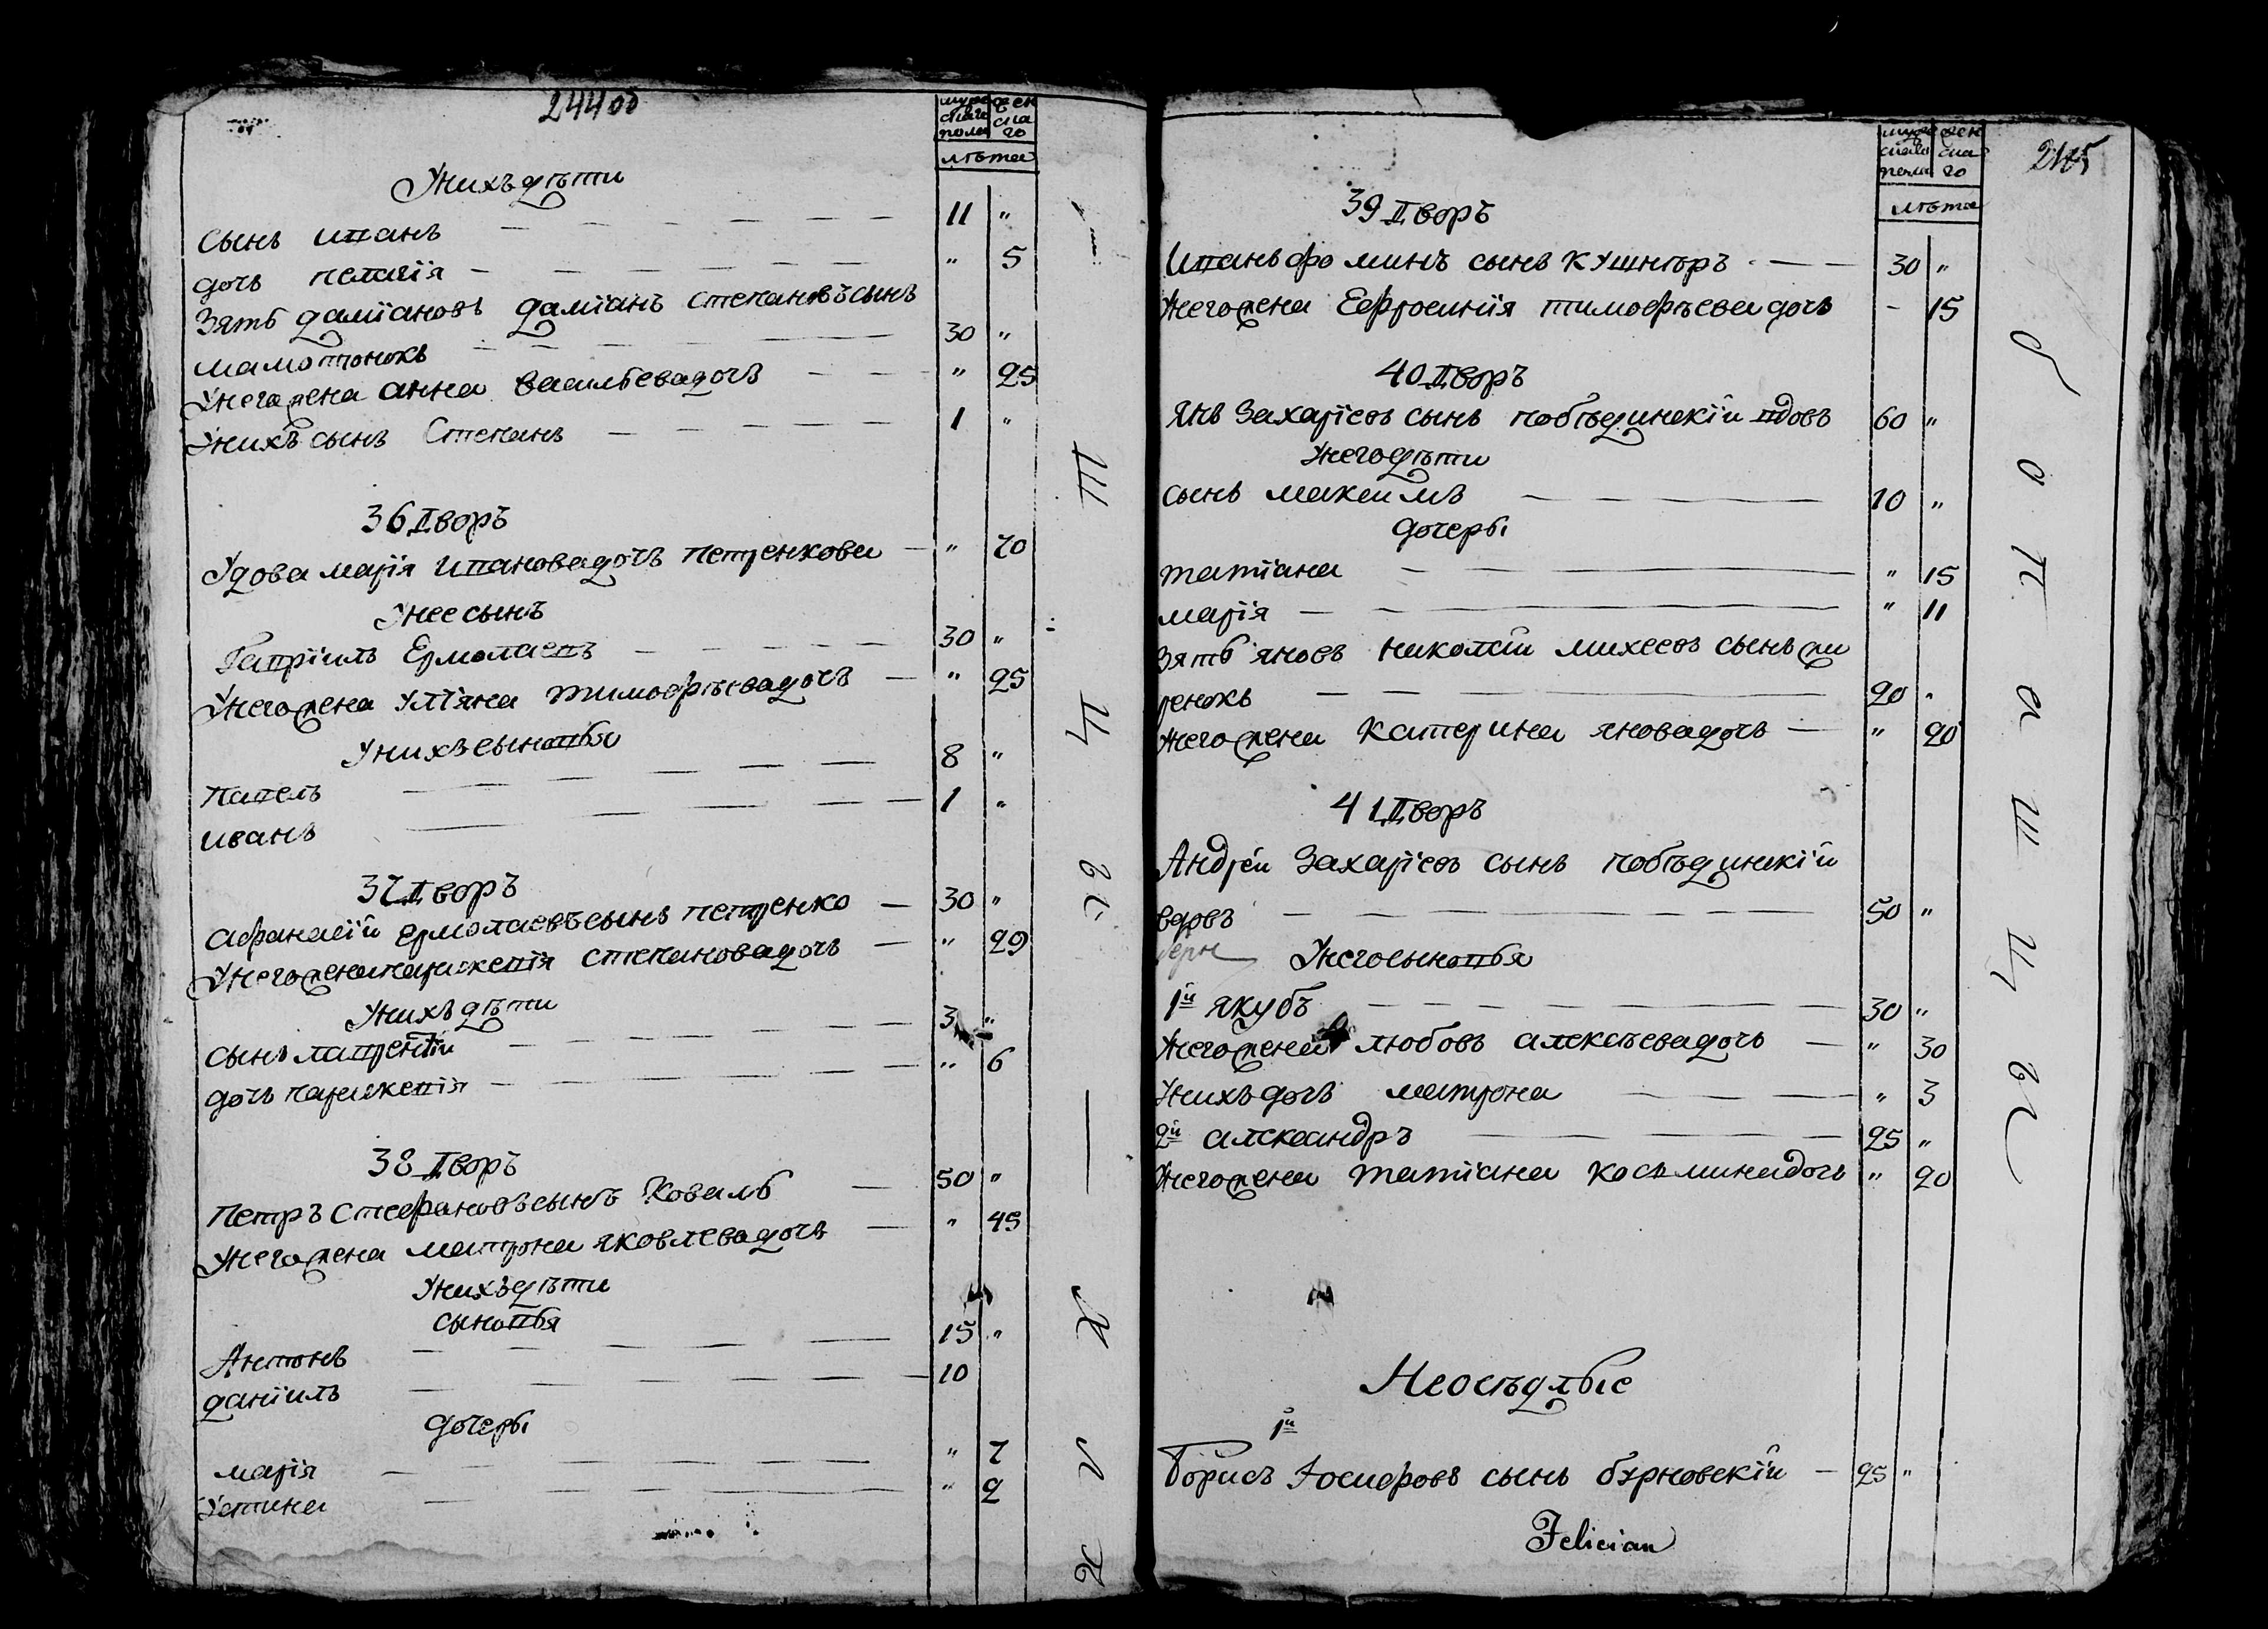 244 об
мужескаго пола женскаго
лѣта
У нихъ дѣти
Сынъ иванъ 11 "
дочь пелагія " 5
Зять даміановъ даміанъ степановъ сынъ
мамотюнокъ 30 "
У него жена анна васильева дочь " 25
У нихъ сынъ Степанъ 1 "
36 Дворъ
Удова марія иванова дочь петренкова " 70
У нее сынъ
Гавріилъ Ермолаевъ 30 "
У него жена улiяна тимофѣева дочь " 25
У нихъ сыновья
павелъ 8 "
иванъ 1 "
37 Дворъ
афанасій ермолаевъ сынъ петренко 30 "
У него жена параскевія степанова дочь " 29
У нихъ дѣти
сынъ лаврентій 3 "
дочь параскевія " 6
38 Дворъ
петръ стефановъ сынъ Коваль 50 "
У него жена матрона яковлева дочь " 45
У нихъ дѣти
сыновья
Антонъ 15 "
даніилъ 10
дочеры
марія " 7
Устина " 2
245
мужескаго пола женскаго
лѣта
39 Дворъ
иванъ фоминъ сынъ кушнѣръ 30 "
У него жена Ефросинія тимофѣева дочь - 15
40 Дворъ
янъ Захаріевъ сынъ побѣдинскій вдовъ 60 "
У него дѣти
сынъ максимъ 10 "
дочеры
татіана " 15
марія " 11
Зять яновъ николай михеевъ сынъ жи
ренокъ 20 "
У него жена катерина янова дочь " 20
41 Дворъ
Андрей Захаріевъ сынъ побѣдинскій
вдовъ 50 "
У него сыновья
1й якубъ 30 "
У него жена любовъ алексѣева дочь " 30
У нихъ дочъ матрона " 3
2й александръ 25 "
У него жена татіана косьмина дочь " 20
Неосѣдлые
1й
Борисъ Іосифовъ сынъ бурновскій 25 "
Felician